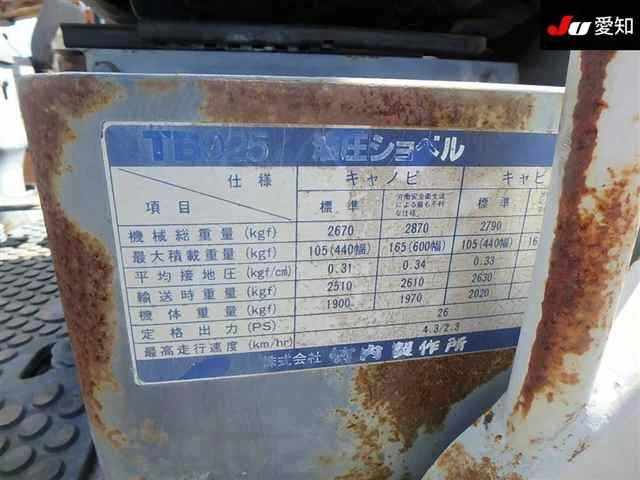 JU 愛知
TB025 油圧ショベル
仕様 キャノピ キャビ
項目 標準 労働安全衛生法による最も不利な仕様。 標準
機械総重量(kgf) 2670 2870 2790
最大積載重量(kgf) 105(440幅) 165(600幅) 105(440幅) 16
平均接地圧(kgf/cm²) 0.31 0.34 0.33
輸送時重量(kgf) 2510 2610 2630
機体重量(kgf) 1900 1970 2020
定格出力(PS) 26
最高走行速度(km/hr) 4.3/2.3
株式会社 竹内製作所